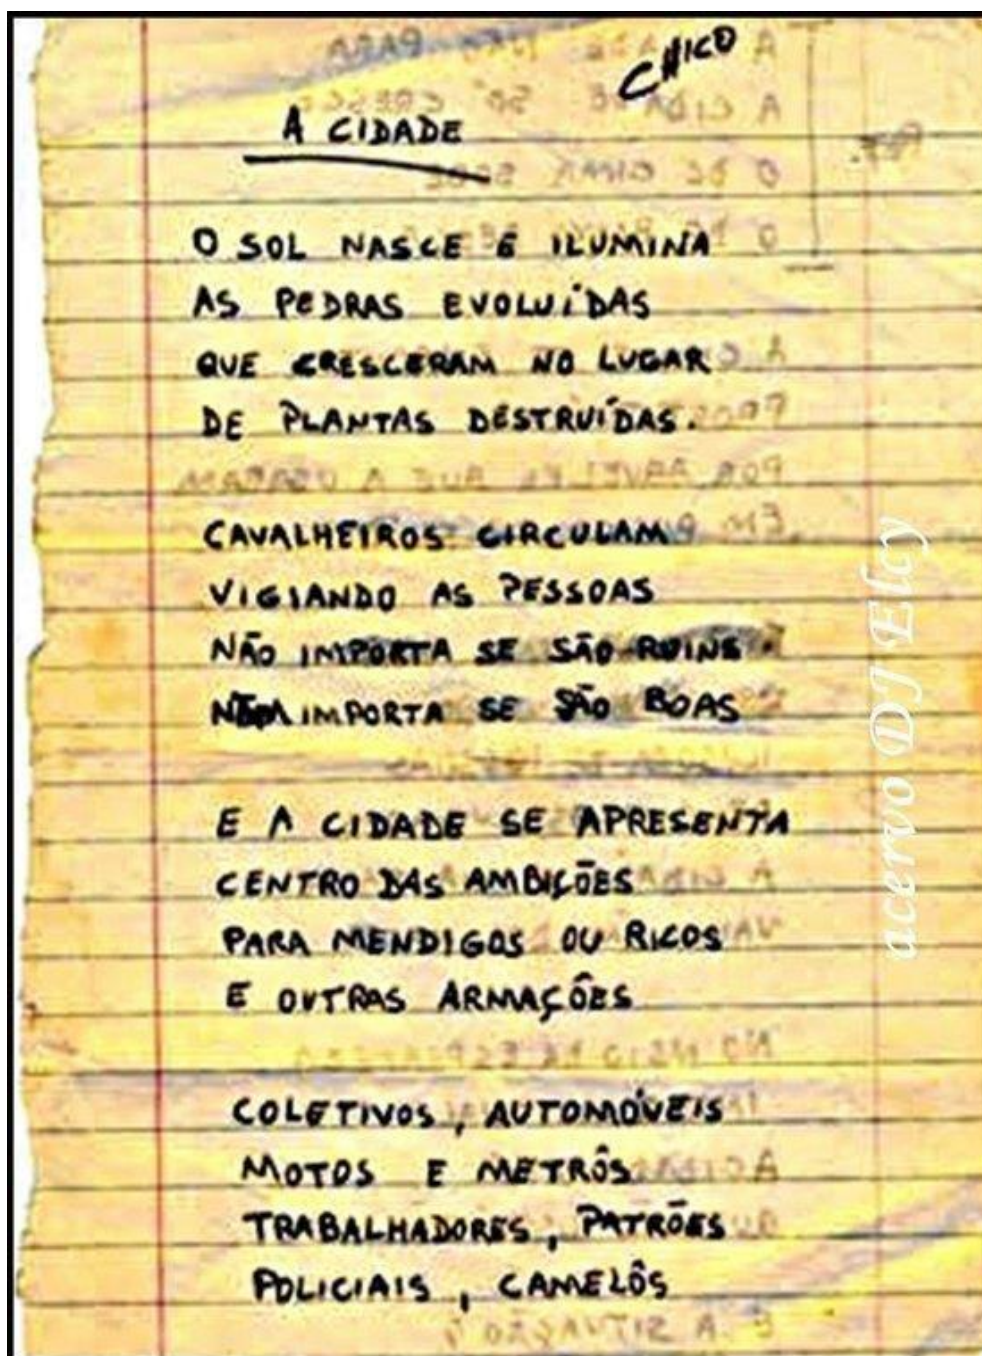 CHICO
A CIDADE
O SOL NASCE E ILUMINA
AS PEDRAS EVOLUÍDAS
QUE CRESCERAM NO LUGAR
DE PLANTAS DESTRUÍDAS.
CAVALHEIROS CIRCULAM
VIGIANDO AS PESSOAS
NÃO IMPORTA SE SÃO RUINS
NÃO IMPORTA SE SÃO BOAS
E A CIDADE SE APRESENTA
CENTRO DAS AMBIÇÕES
PARA MENDIGOS OU RICOS
E OUTRAS ARMAÇÕES
COLETIVOS, AUTOMÓVEIS
MOTOS E METRÔS
TRABALHADORES, PATRÕES
POLICIAIS, CAMELÔS
acervo DJ Elcy